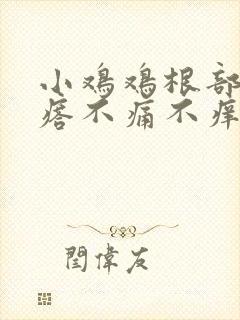 小鸡鸡根部
痞不痛不痒
閆偉友